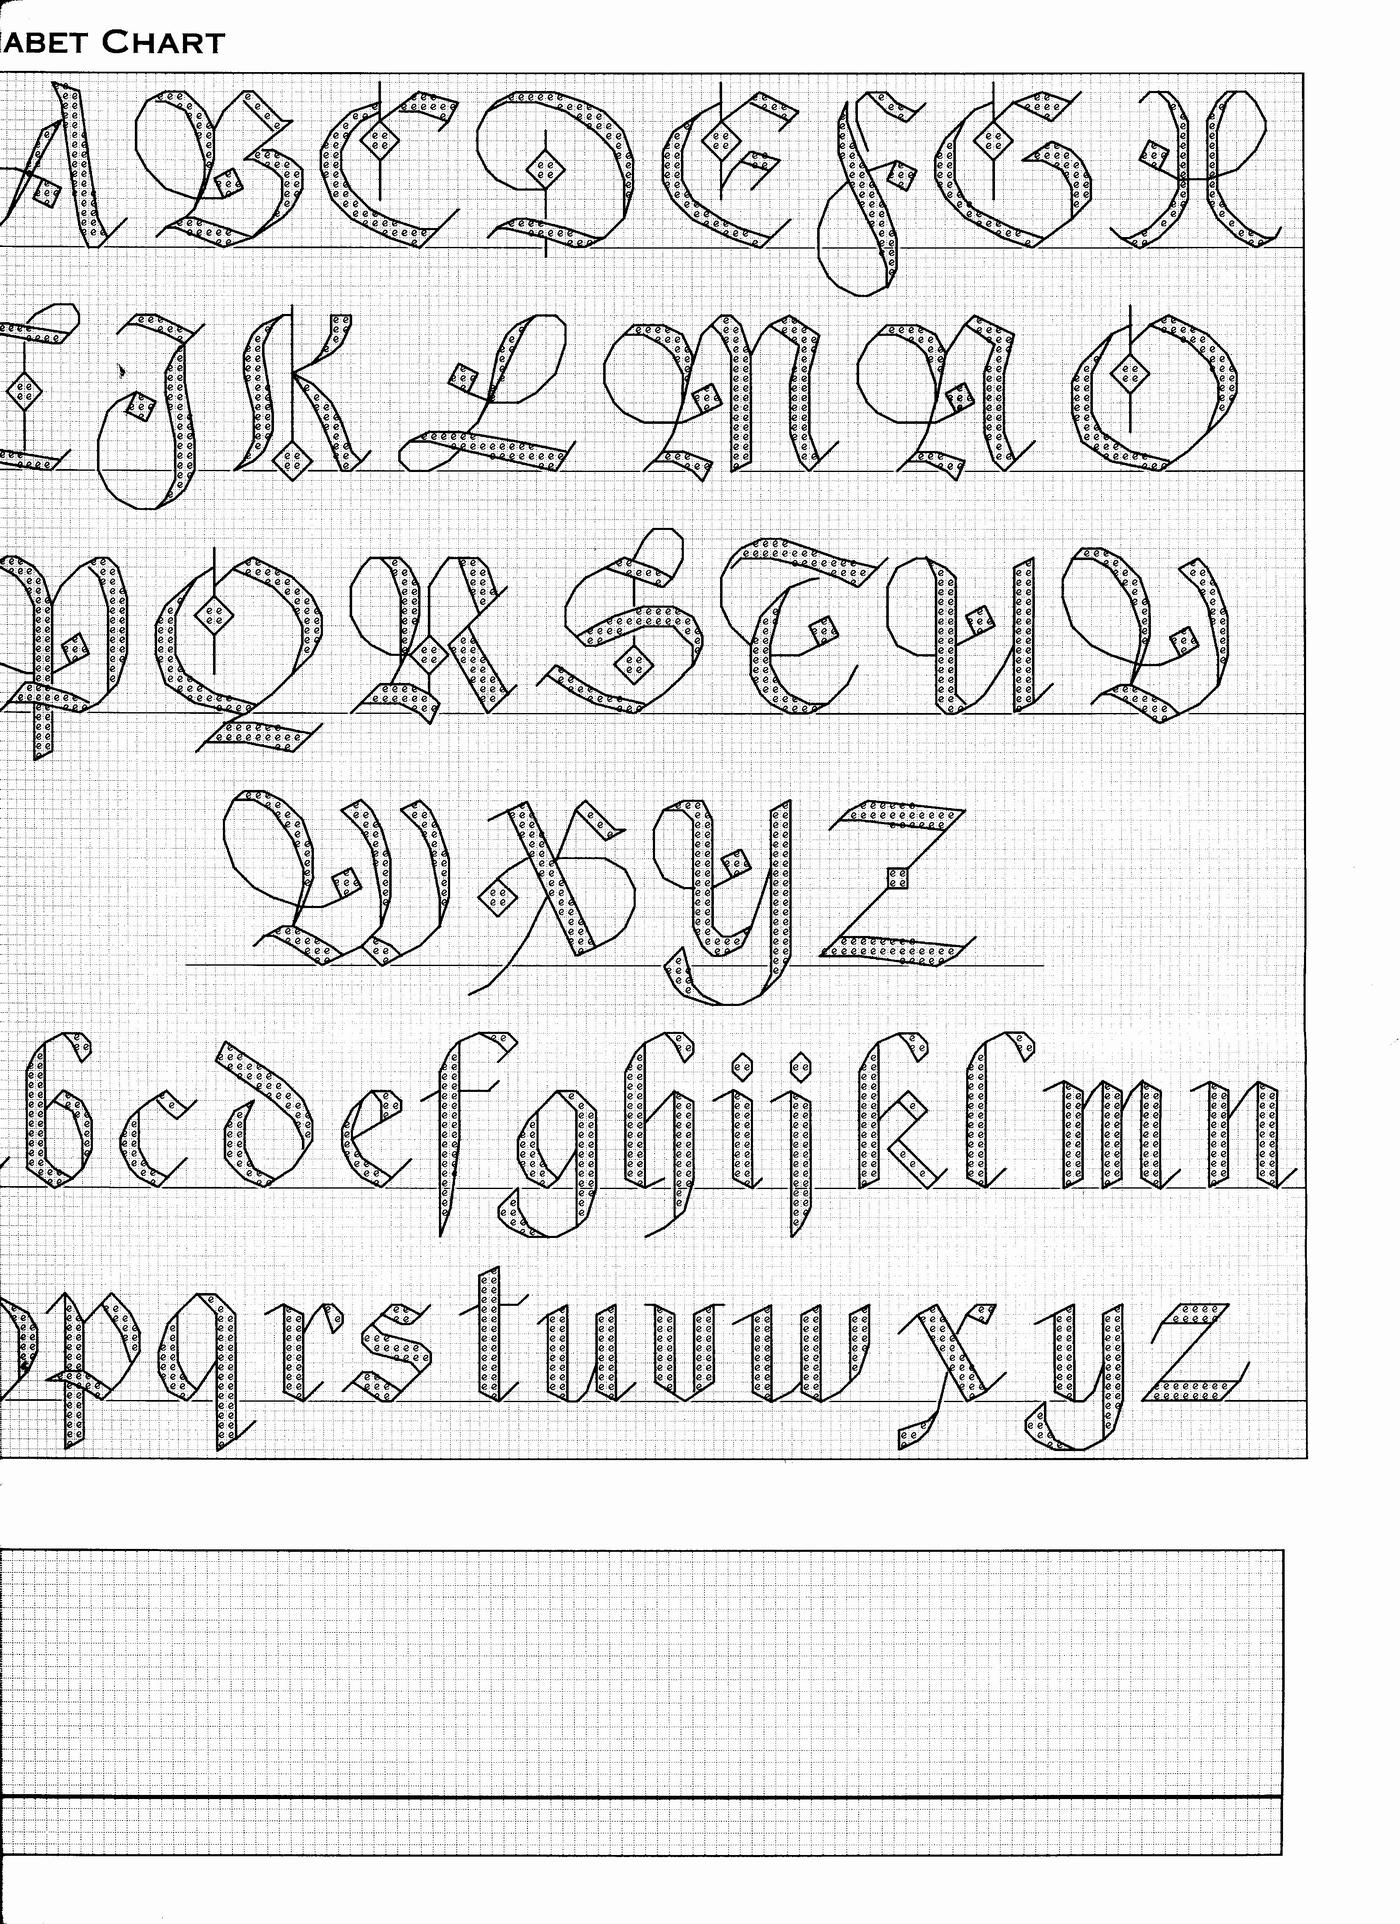 ABET CHART
A B C D E F G H
I J K L M N O
P Q R S T U V
W X Y Z
b c d e f g h i j k l m n
o p q r s t u v w x y z